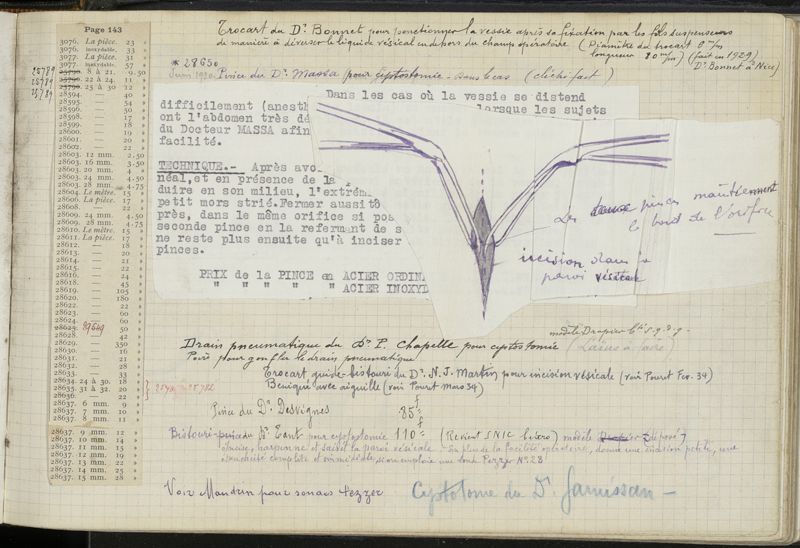 Page 143
3076. La pièce. 23 »
3076. inévitable. 33 »
3077. La pièce. 57 »
3077. inévitable.
25789 25790. 8 à 21. 9.50
25789 25790. 22 à 24. 11 »
25789 25790. 25 à 30. 12 »
28594. — 40 »
28595. — 54 »
28596. — 50 »
28598. — 17 »
28599. — 18 »
28600. — 19 »
28601. — 20 »
28602. — 22 »
28603. 12 mm. 2.50
28603. 16 mm. 3.50
28603. 20 mm. 4 »
28603. 24 mm. 4.50
28603. 28 mm. 4.75
28604. Le mètre. 15 »
28606. La pièce. 17 »
28608. — 22 »
28609. 24 mm. 4.50
28609. 28 mm. 4.75
28610. Le mètre. 15 »
28611. La pièce. 17 »
28612. — 18 »
28613. — 20 »
28614. — 21 »
28615. — 21 »
28616. — 22 »
28617. — 24 »
28618. — 45 »
28619. — 105 »
28620. — 180 »
28622. — 22 »
28624. — 60 »
28625. 29649 — 50 »
28628. — 42 »
28629. — 350 »
28630. — 16 »
28631. — 21 »
28632. — 28 »
28633. — 33 »
28634. 24 à 30. 18 »
28635. 31 à 32. 30 »
28636. — 22 »
28637. 6 mm. 9 »
28637. 7 mm. 10 »
28637. 8 mm. 11 »
28637. 9 mm. 12 »
28637. 10 mm. 14 »
28637. 11 mm. 15 »
28637. 12 mm. 19 »
28637. 13 mm. 22 »
28637. 14 mm. 25 »
28637. 15 mm. 28 »
Trocart du Dr. Bonnet pour ponctionner la vessie après sa fixation par les fils suspenseurs
de manière à déverser le liquide vésical en dehors du champ opératoire (Diamètre du trocart 8 m/m
longueur 80 m/m) (fait en 1929)
Dr Bonnet à Nice)
* 28650
Juin 1930 Pince du Dr. Massa pour cystostomie - sans bras (cliché fait)
Dans les cas où la vessie se distend
difficilement (anesth lorsque les sujets
ont l'abdomen très dé
du Docteur MASSA afin
facilité.
TECHNIQUE.- Après avo
néal,et en présence de la
duire en son milieu, l'extrém
petit mors strié.Fermer aussitô
près, dans le même orifice si pos
seconde pince en la refermant de s
ne reste plus ensuite qu'à inciser
pinces.
PRIX de la PINCE en ACIER ORDINA
" " " " " ACIER INOXYD
Les deux pinces maintiennent
le bord de l'orifice
incision dans la
paroi vésicale
modèle Drapier
Drain pneumatique du Dr P. Chapelle pour cystostomie (Laisse à faire)
Poire pour gonfler le drain pneumatique
Trocart guide-bistouri du Dr. N. J. Martin pour incision vésicale (voir Pouret Fev. 34)
Béniqué avec aiguille (voir Pouret Mars 34)
Pince du Dr. Desvignes 85 f
Bistouri-pince du Dr Tant pour cystostomie 110 f (Revient SNIC bisero) modèle Drapier déposé)
incise, harponne et saisit la paroi vésicale - En plus de la facilité opératoire, donne une incision petite, une
étanchéité complète et immédiate, si on emploie une sonde Pezzer No 28
Voir Mandrin pour sondes Pezzer
Cystotome du Dr. Jamissan -